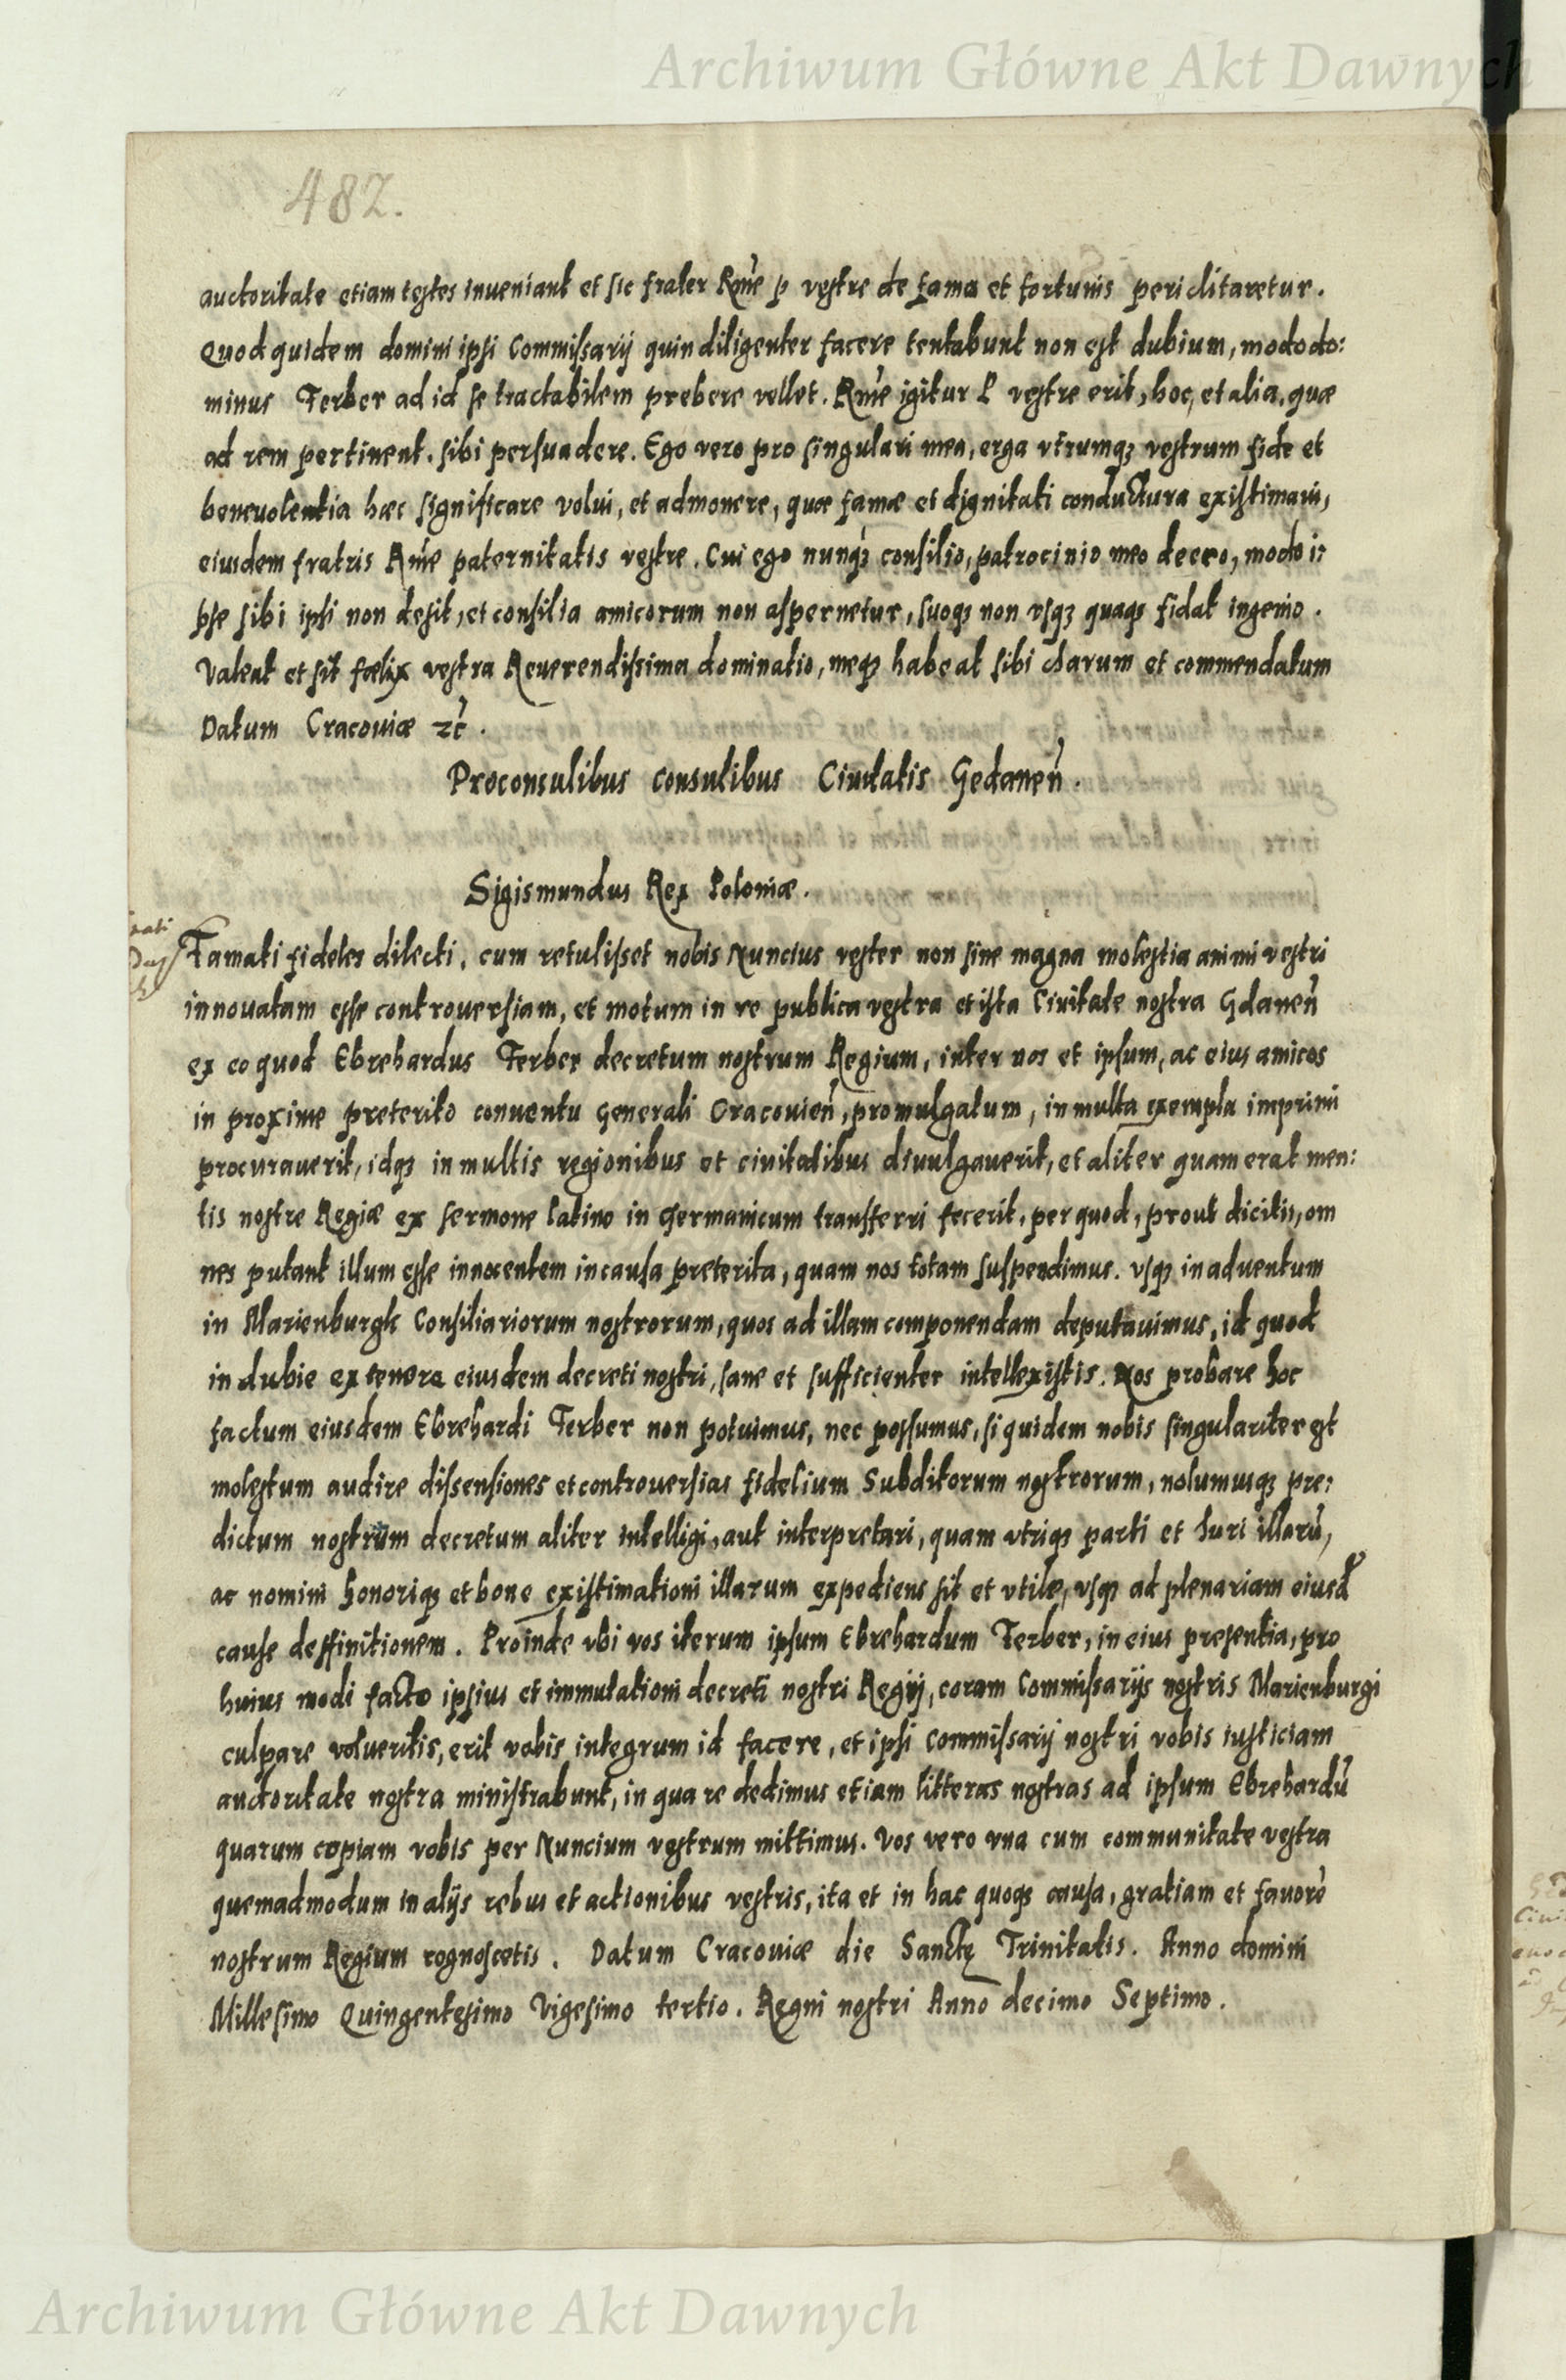 Archiwum Główne Akt Dawnych
482.
auctoritate etiam testes inueniant et sic frater Rm̃e p vestre de fama et fortunis periclitaretur.
Quod quidem domini ipsi Commissarij quin diligenter facere tentabunt non est dubium, modo do:
minus Ferber ad id se tractabilem prebere vellet. Rm̃e igitur P vestre erit, hoc, et alia, quæ
ad rem pertinent. sibi persuadere. Ego vero pro singulari mea, erga vtrumqꝫ vestrum fide et
beneuolentia hæc significare volui, et admonere, quæ famæ et dignitati conductura existimaui,
eiusdem fratris Rm̃e paternitatis vestre. Cui ego nunqꝫ consilio, patrocinio meo deero, modo i:
pse sibi ipsi non desit, et consilia amicorum non aspernetur, suoqꝫ non vsqꝫ quaqꝫ fidat ingenio.
Valeat et sit fœlix vestra Reuerendissima dominatio, meqꝫ habeat sibi charum et commendatum
Datum Cracouiæ ꝛc̃.
Proconsulibus Consulibus Ciuitatis Gedanen̄.
Sigismundus Rex Poloniæ.
Famati fideles dilecti, cum retulisset nobis Nuncius vester non sine magna molestia animi vestri
innouatam esse controuersiam, et motum in re publica vestra et ista Ciuitate nostra Gdanen̄
ex eo quod Ebrehardus Ferber decretum nostrum Regium, inter nos et ipsum, ac eius amicos
in proxime preterito conuentu Generali Cracouien̄, promulgatum, in multa exempla imprimi
procurauerit, idqꝫ in multis regionibus et ciuitatibus diuulgauerit, et aliter quam erat men:
tis nostre Regiæ ex sermone latino in Germanicum transferri fecerit, per quod, prout dicitis, om
nes putant illum esse innocentem in causa preterita, quam nos totam suspendimus. vsqꝫ in aduentum
in Marienburgk Consiliariorum nostrorum, quos ad illam componendam deputauimus, id quod
in dubie ex tenore eiusdem decreti nostri, sane et sufficienter intellexistis. Nos probare hoc
factum eiusdem Ebrehardi Ferber non potuimus, nec possumus, si quidem nobis singulariter est
molestum audire dissensiones et controuersias fidelium Subditorum nostrorum, nolumusqꝫ pre:
dictum nostrum decretum aliter intelligi, aut interpretari, quam vtriqꝫ parti et Juri illorū,
ac nomini honoriqꝫ et bone existimationi illarum expediens sit et vtile, vsqꝫ ad plenariam eiusd̄
cause deffinitionem. Proinde vbi vos iterum ipsum Ebrehardum Ferber, in eius presentia, pro
huius modi facto ipsius et immutationi decreti nostri Regij, coram Commissarijs nostris Marienburgi
culpare volueritis, erit vobis integrum id facere, et ipsi Commissarij nostri vobis iusticiam
auctoritate nostra ministrabunt, in qua re dedimus etiam litteras nostras ad ipsum Ebrehardū
quarum copiam vobis per Nuncium vestrum mittimus. Vos vero vna cum communitate vestra
quemadmodum in alijs rebus et actionibus vestris, ita et in hac quoqꝫ causa, gratiam et fauorē
nostrum Regium cognoscetis. Datum Cracouiæ die Sanctę Trinitatis. Anno domini
Millesimo Quingentesimo Vigesimo tertio. Regni nostri Anno decimo Septimo.
Archiwum Główne Akt Dawnych